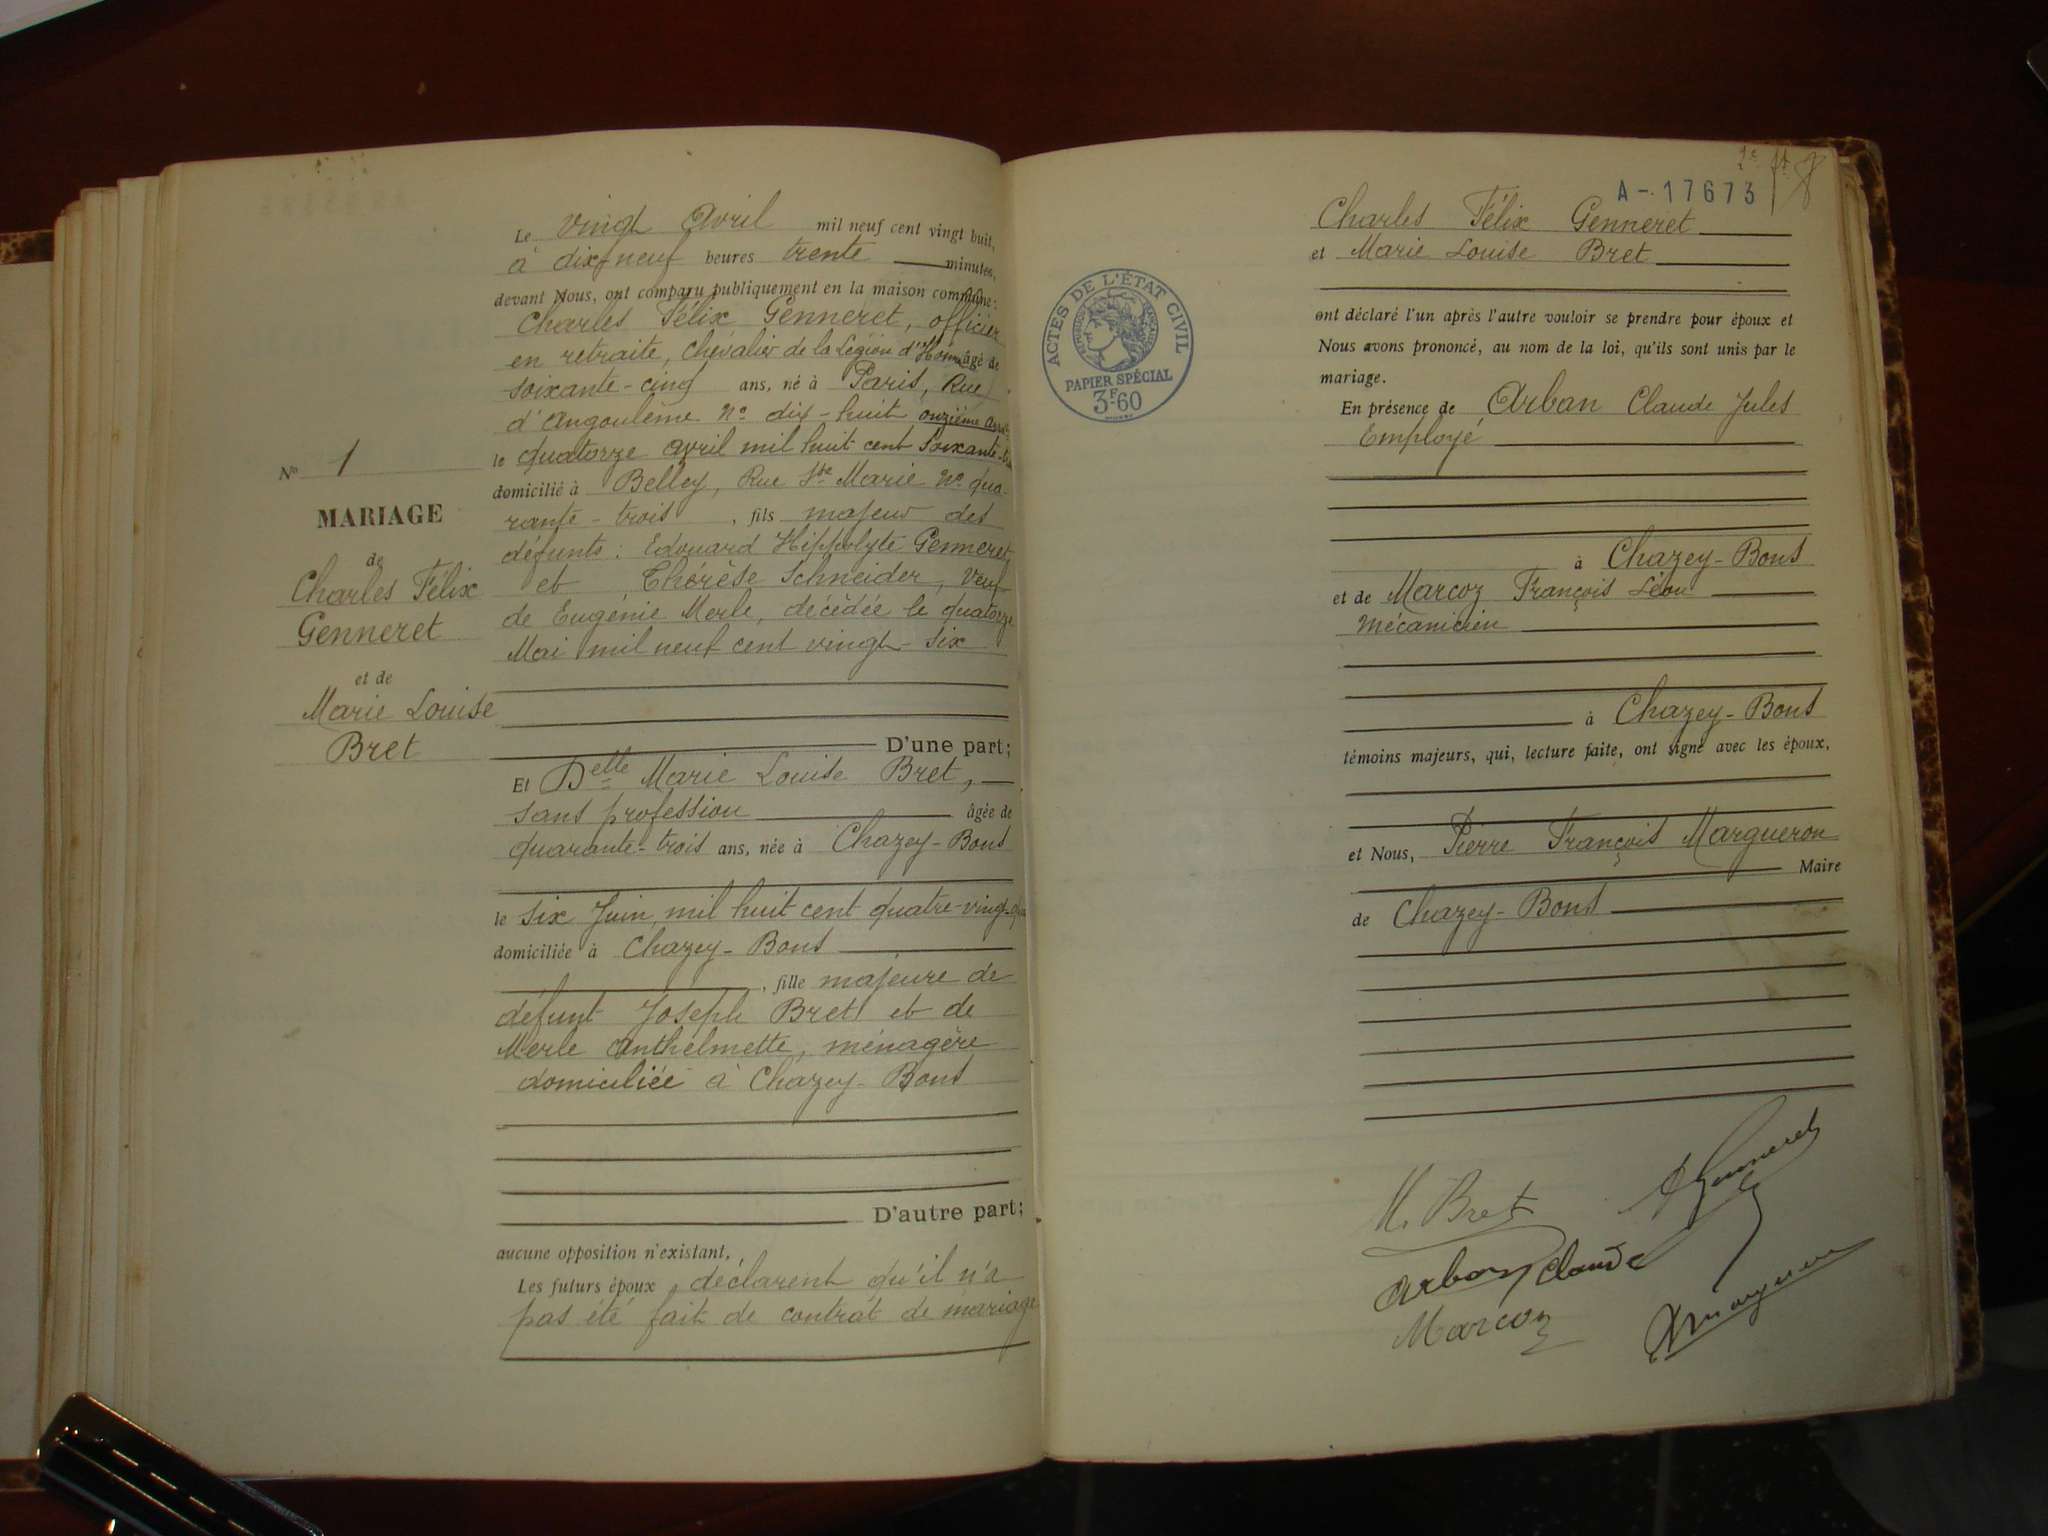 Nº 1
MARIAGE
de
Charles Félix
Genneret
et de
Marie Louise
Bret
Le vingt Avril mil neuf cent vingt huit,
à dix-neuf heures trente minutes,
devant Nous, ont comparu publiquement en la maison commune:
Charles Félix Genneret, officier
en retraite, Chevalier de la Légion d'Honn âgé de
soixante-cinq ans, né à Paris, Rue
d'Angoulême Nº dix-huit onzième
le quatorze avril mil huit cent soixante-
domicilié à Belley, Rue Ste Marie Nº qua-
rante-trois, fils majeur des
défunts: Edouard Hippolyte Genneret
et Thérèse Schneider, Veuf
de Eugénie Merle, décédée le quatorze
Mai mil neuf cent vingt-six
D'une part;
Et Delle Marie Louise Bret,
sans profession âgée de
quarante-trois ans, née à Chazey-Bons
le six Juin, mil huit cent quatre-vingt-
domiciliée à Chazey-Bons
, fille majeure de
défunt Joseph Bret et de
Merle Anthelmette, ménagère
domiciliée à Chazey-Bons
D'autre part;
aucune opposition n'existant,
Les futurs époux déclarent qu'il n'a
pas été fait de contrat de mariage
A-17673
8
ACTES DE L'ÉTAT CIVIL
RÉPUBLIQUE FRANÇAISE
PAPIER SPÉCIAL
3F60
Charles Félix Genneret
et Marie Louise Bret
ont déclaré l'un après l'autre vouloir se prendre pour époux et
Nous avons prononcé, au nom de la loi, qu'ils sont unis par le
mariage.
En présence de Arban Claude Jules
Employé
à Chazey-Bons
et de Marcoz François Léon
mécanicien
à Chazey-Bons
témoins majeurs, qui, lecture faite, ont signé avec les époux,
et Nous, Pierre François Margueron
Maire
de Chazey-Bons
M. Bret Genneret
Arban Claude
Marcoz Margueron